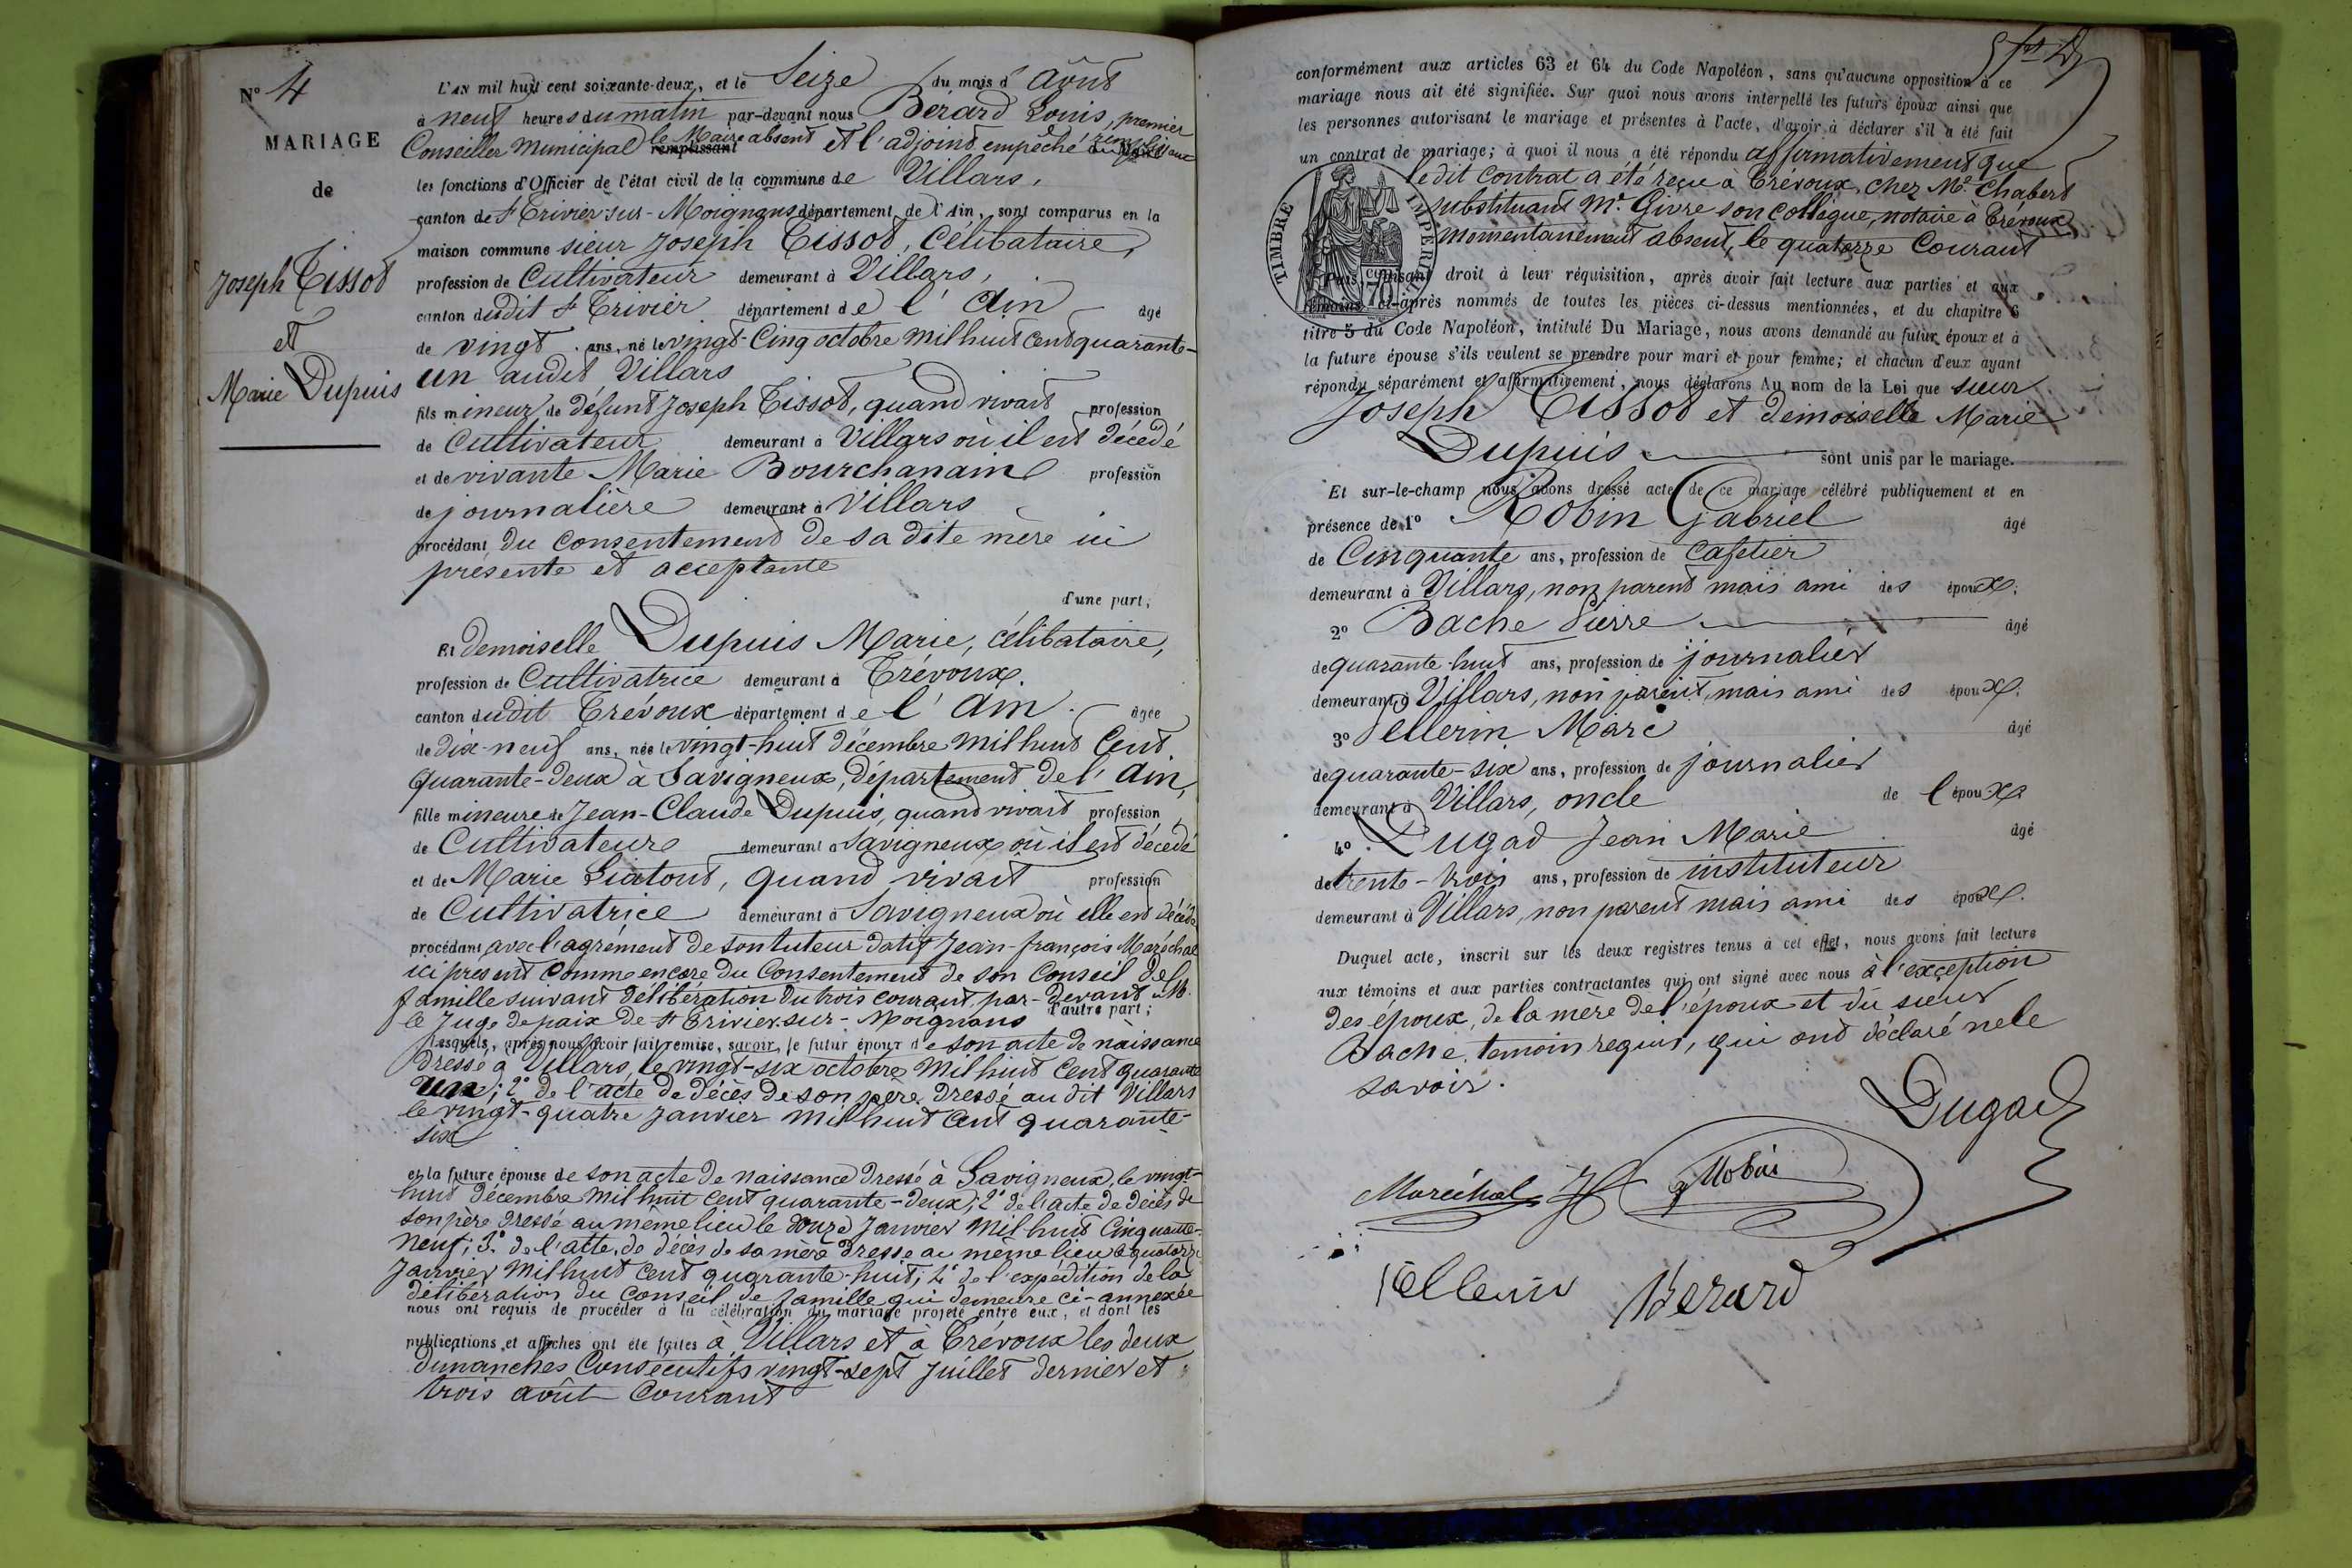 N° 4
MARIAGE
de
Joseph Tissot
et
Marie Dupuis
L'AN mil huit cent soixante-deux, et le Seize du mois d'Août
à neuf heures du matin par-devant nous Berard Louis, premier
Conseiller Municipal le Maire absent et l'adjoint empêché
les fonctions d'Officier de l'état civil de la commune de Villars,
canton de St Trivier-sur-Moignans département de l'Ain, sont comparus en la
maison commune sieur Joseph Tissot, Célibataire,
profession de Cultivateur demeurant à Villars,
canton dudit St Trivier département de l'Ain âgé
de vingt ans, né le vingt-Cinq octobre mil huit cent quarante-
un audit Villars
fils mineur de défunt Joseph Tissot, quand vivait profession
de Cultivateur demeurant à Villars où il est décédé
et de vivante Marie Bourchanain profession
de journalière demeurant à Villars
procédant du consentement de sa dite mère ici
présente et acceptante
d'une part;
Et demoiselle Dupuis Marie, célibataire,
profession de Cultivatrice demeurant à Trévoux.
canton dudit Trévoux département de l'Ain. âgée
de dix-neuf ans, née le vingt-huit décembre mil huit Cent
quarante-deux à Savigneux, département de l'Ain,
fille mineure de Jean-Claude Dupuis, quand vivait profession
de Cultivateur demeurant à Savigneux où il est décédé
et de Marie Liatout, quand vivait profession
de Cultivatrice demeurant à Savigneux où elle est décédée
procédant avec l'agrément de son tuteur datif Jean-françois Maréchal
ici présent comme encore du Consentement de son Conseil de
famille suivant délibération du trois courant, par-devant M.
le Juge de paix de St Trivier-sur-Moignans d'autre part;
Lesquels, après nous avoir fait remise, savoir, le futur époux de son acte de naissance
dressé à Villars, le vingt-six octobre mil huit Cent quarante
un; 2° de l'acte de décès de son père dressé au dit Villars
le vingt-quatre janvier mil huit cent quarante-
six
et la future épouse de son acte de naissance dressé à Savigneux, le vingt-
huit décembre mil huit cent quarante-deux; 2° de l'acte de décès de
son père dressé au même lieu le douze Janvier mil huit Cinquante-
neuf; 3° de l'acte de décès de sa mère dressé au même lieu le quatorze
Janvier mil huit cent quarante-huit; 4° de l'expédition de la
délibération du Conseil de famille qui demeure ci-annexée
nous ont requis de procéder à la célébration du mariage projeté entre eux, et dont les
publications et affiches ont été faites à Villars et à Trévoux les deux
dimanches Consécutifs vingt-sept juillet dernier et
trois août Courant
conformément aux articles 63 et 64 du Code Napoléon, sans qu'aucune opposition à ce
mariage nous ait été signifiée. Sur quoi nous avons interpellé les futurs époux ainsi que
les personnes autorisant le mariage et présentes à l'acte, d'avoir à déclarer s'il a été fait
un contrat de mariage; à quoi il nous a été répondu affirmativement que
ledit Contrat a été reçu à Trévoux, chez Me Chabert
substituant Me Givre son collègue, notaire à Trévoux
momentanément absent, le quatorze Courant
TIMBRE IMPÉRIAL
Puis, faisant droit à leur réquisition, après avoir fait lecture aux parties et aux
témoins ci-après nommés de toutes les pièces ci-dessus mentionnées, et du chapitre 6
titre 5 du Code Napoléon, intitulé Du Mariage, nous avons demandé au futur époux et à
la future épouse s'ils veulent se prendre pour mari et pour femme; et chacun d'eux ayant
répondu séparément et affirmativement, nous déclarons Au nom de la Loi que sieur
Joseph Tissot et demoiselle Marie
Dupuis sont unis par le mariage.
Et sur-le-champ nous avons dressé acte de ce mariage célébré publiquement et en
présence de 1° Robin Gabriel âgé
de Cinquante ans, profession de Cafetier
demeurant à Villars, non parent mais ami des époux;
2° Bache Pierre âgé
de quarante-huit ans, profession de journalier
demeurant à Villars, non parent, mais ami des époux;
3° Pellerin Marc âgé
de quarante-six ans, profession de journalier
demeurant à Villars, oncle de l'époux
4° Dugad Jean Marie âgé
de trente-trois ans, profession de instituteur
demeurant à Villars, non parent mais ami des époux.
Duquel acte, inscrit sur les deux registres tenus à cet effet, nous avons fait lecture
aux témoins et aux parties contractantes qui ont signé avec nous à l'exception
des époux, de la mère de l'époux et du sieur
Bache, temoin requis, qui ont déclaré ne le
savoir.
Dugad
Maréchal
Robin
Pellerin
Berard